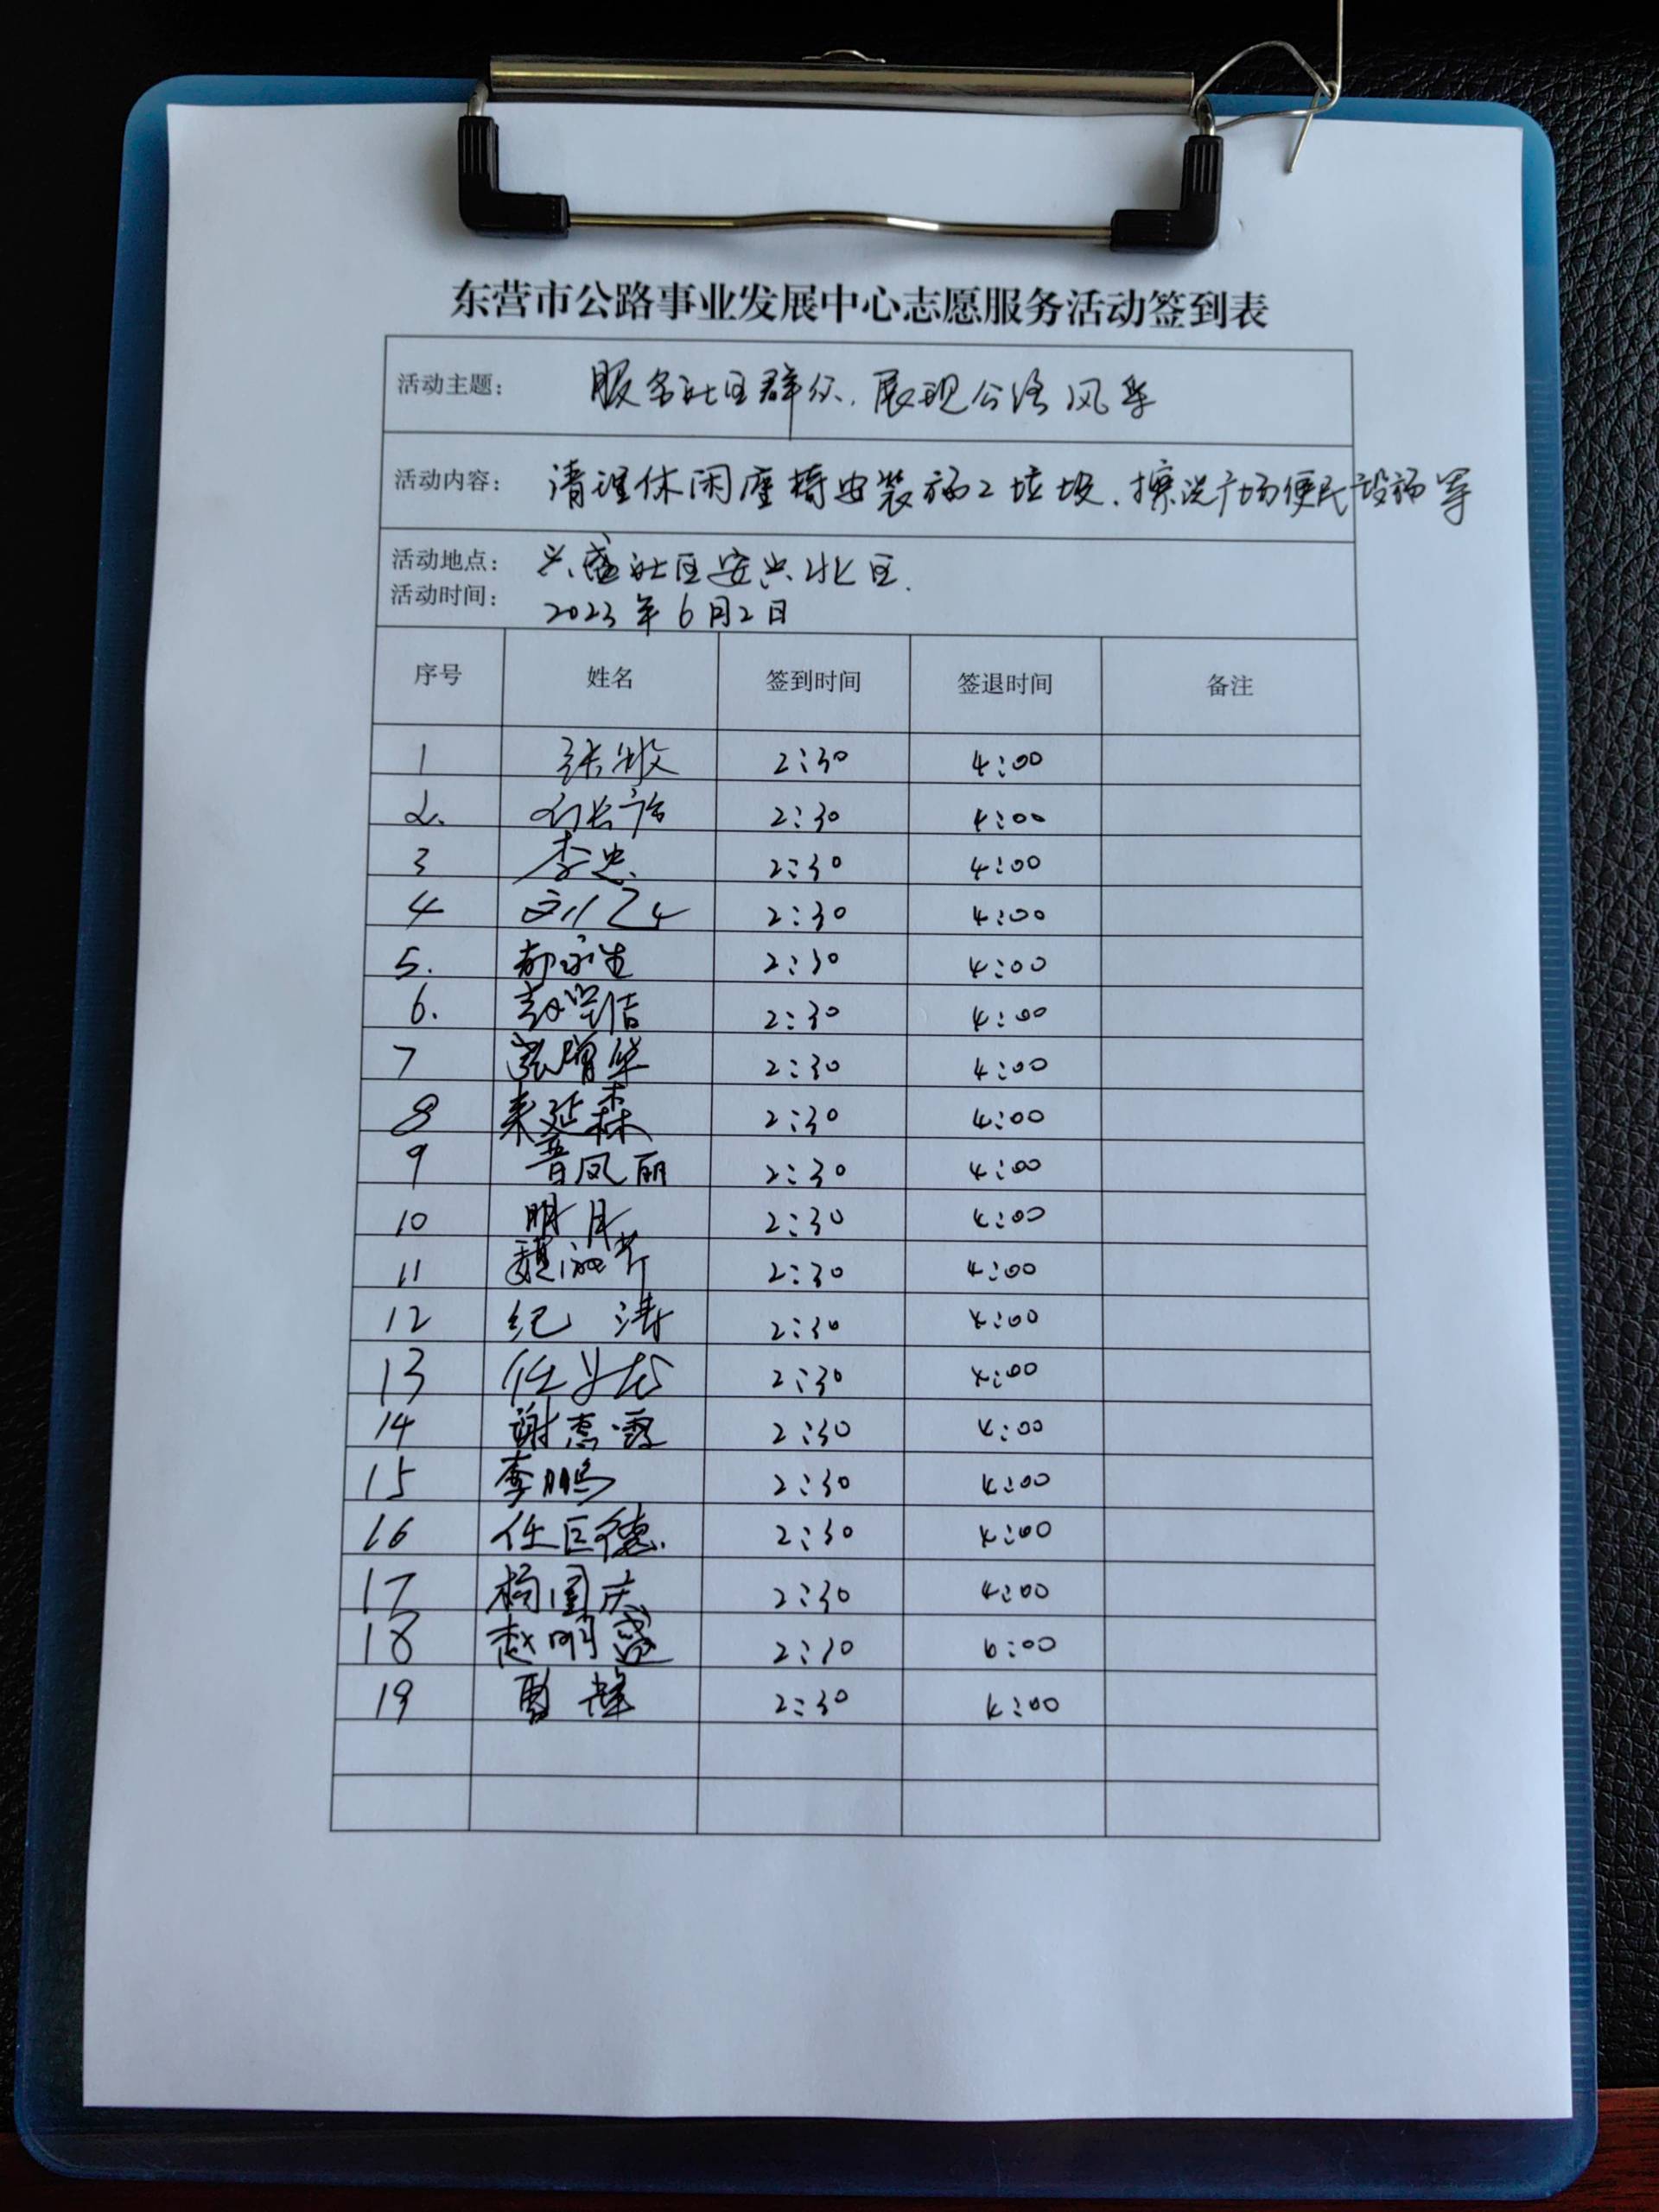 东营市公路事业发展中心志愿服务活动签到表
活动主题： 服务社区群众、展现公路风采
活动内容： 清理休闲座椅安装施工垃圾、擦洗广场便民设施等
活动地点： 兴盛社区安兴北区.
活动时间： 2023年6月2日
序号 姓名 签到时间 签退时间 备注
1 张牧 2:30 4:00
2. 2:30 4:00
3 李忠 2:30 4:00
4 刘 2:30 4:00
5. 郝永生 2:30 4:00
6. 赵 2:30 4:00
7 张增华 2:30 4:00
8 来延森 2:30 4:00
9 晋凤丽 2:30 4:00
10 明月 2:30 4:00
11 魏淑芹 2:30 4:00
12 纪涛 2:30 4:00
13 任 2:30 4:00
14 谢杰霞 2:30 4:00
15 李鹏 2:30 4:00
16 任巨德. 2:30 4:00
17 杨国庆 2:30 4:00
18 赵明盛 2:30 4:00
19 2:30 4:00